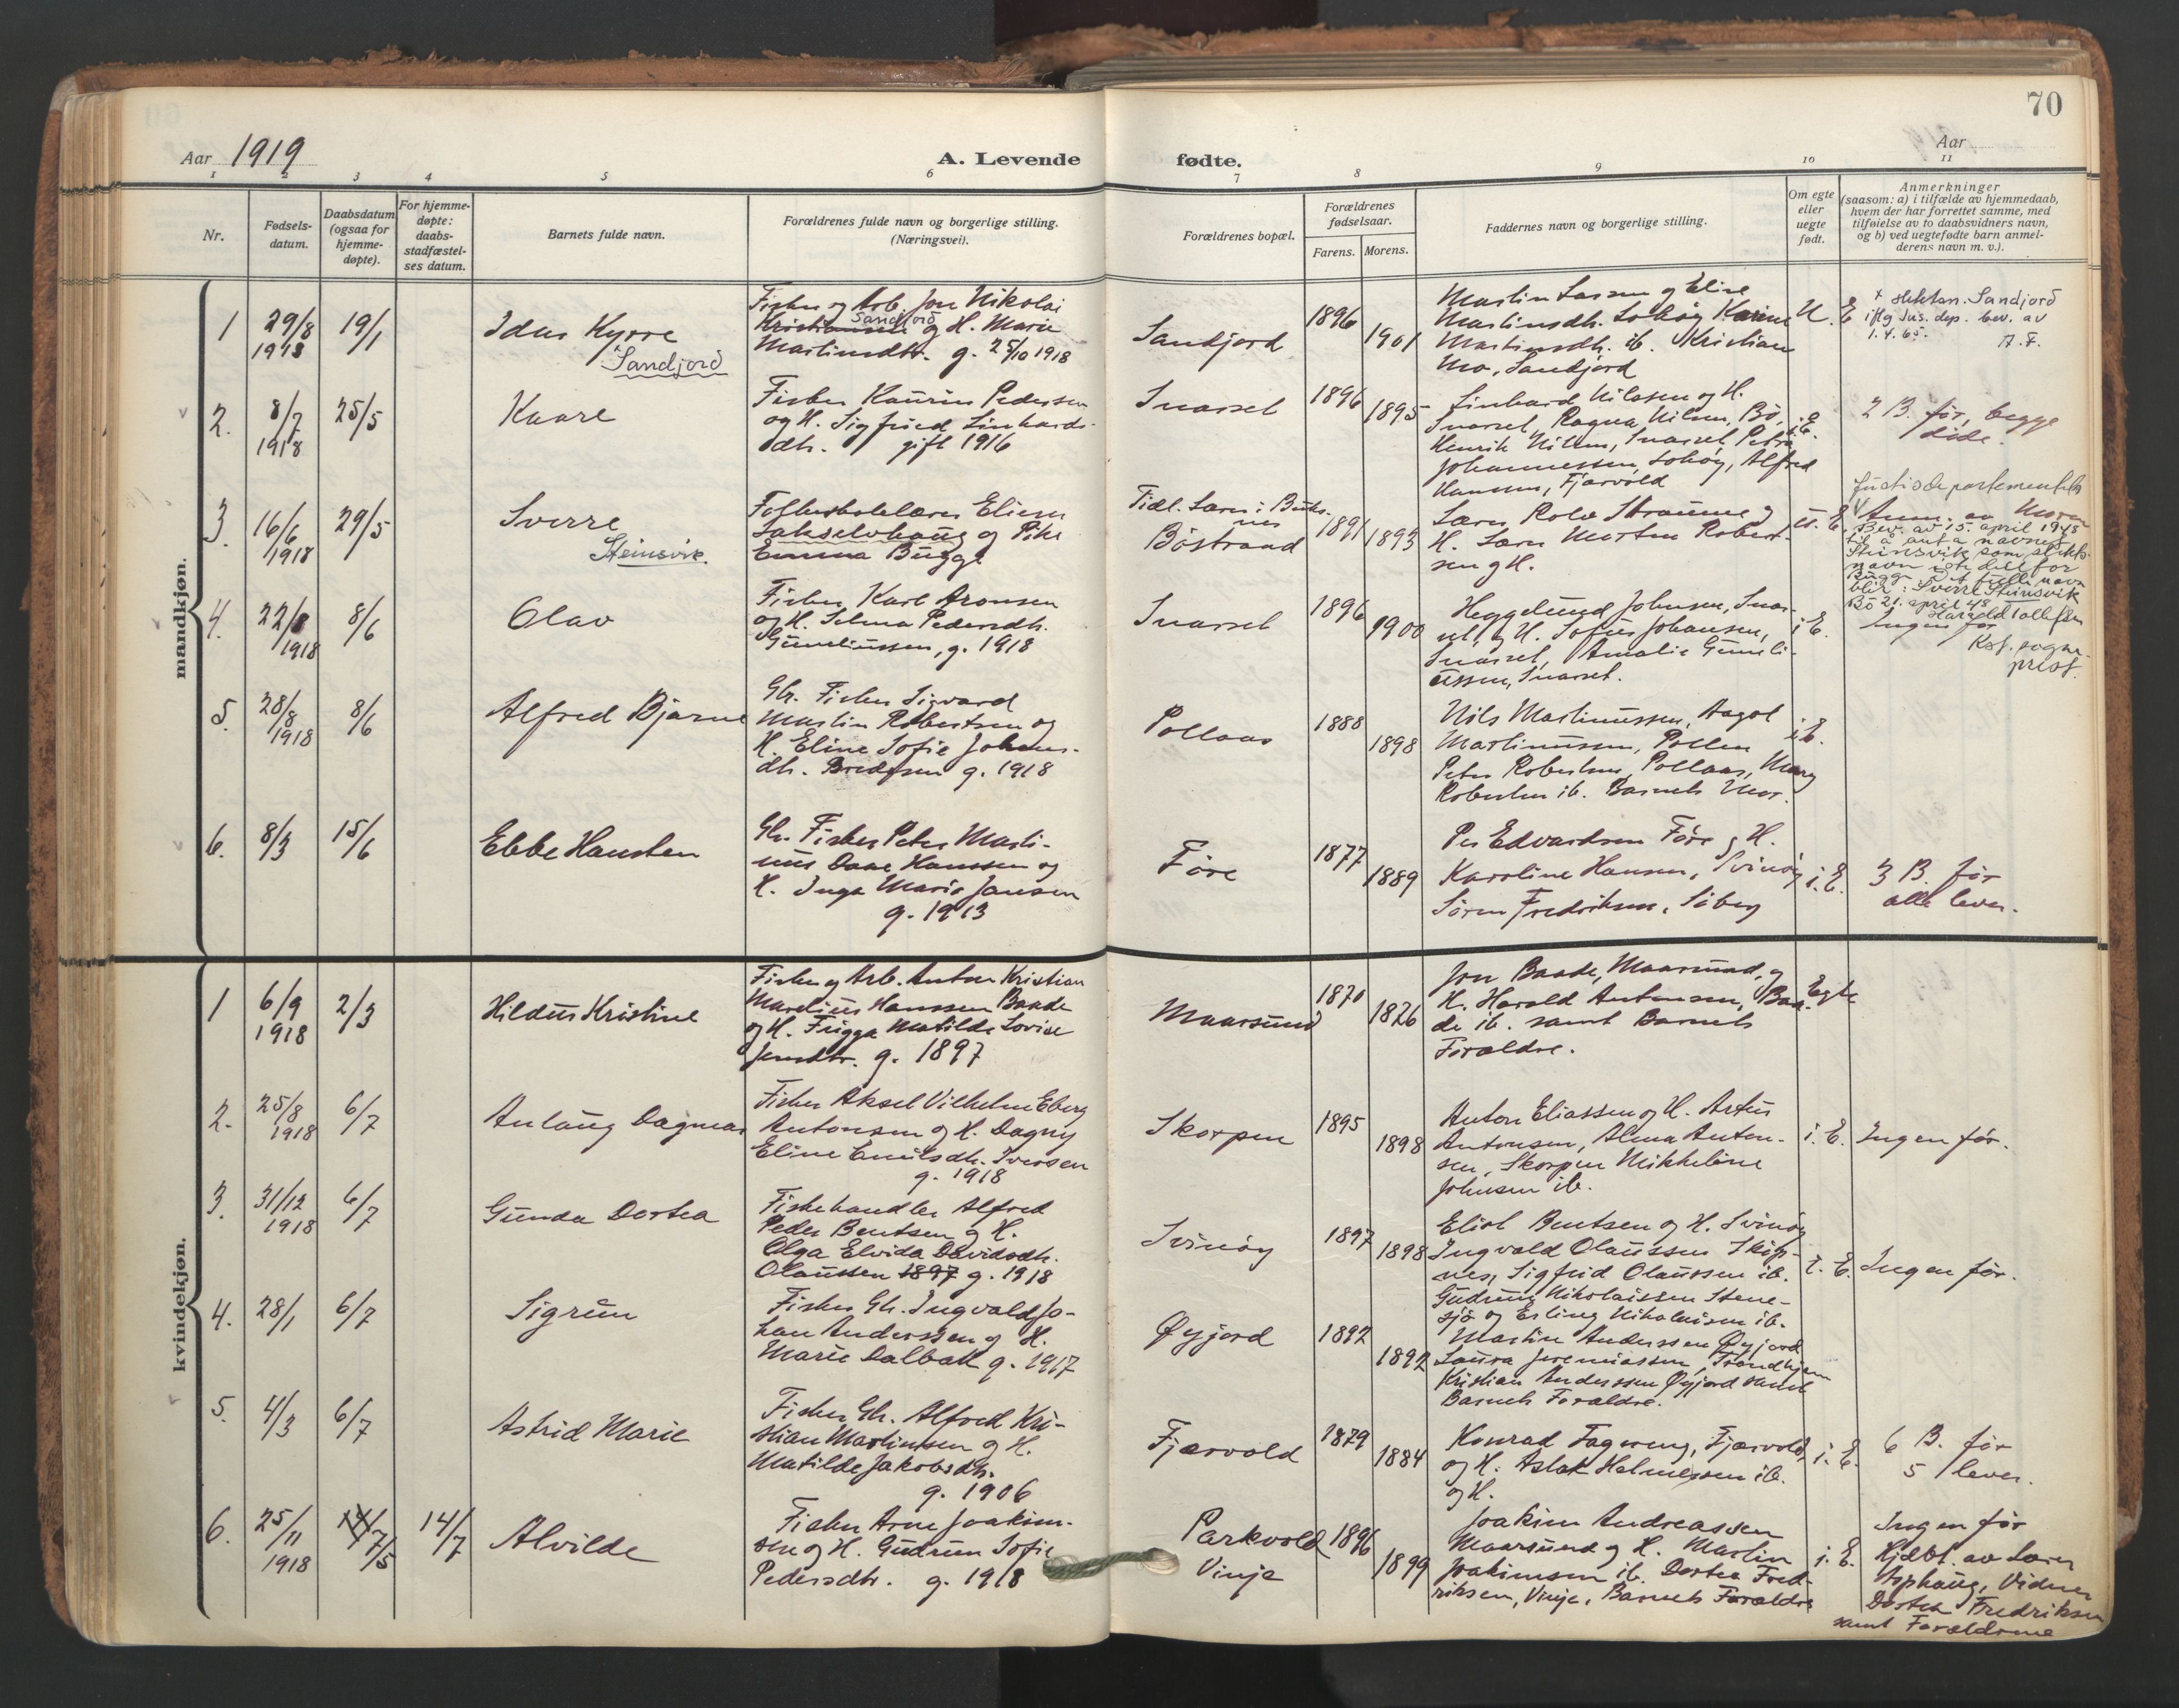 70
Aar 1919
A. Levende
fødte.
Aar
1 2 3 4 5 6 7 8 9 10 11
Nr.
Fødsels-
datum.
Daabsdatum
(ogsaa for
hjemme-
døpte).
For hjemme-
døpte:
daabs-
stadfæstel-
ses datum.
Barnets fulde navn.
Forældrenes fulde navn og borgerlige stilling.
(Næringsvei).
Forældrenes bopæl.
Forældrenes
fødselsaar.
Farens. Morens.
Faddernes navn og borgerlige stilling.
Om egte
eller
uegte
født.
Anmerkninger
(saasom: a) i tilfælde av hjemmedaab,
hvem der har forrettet samme, med
tilføielse av to daabsvidners navn,
og b) ved uegtefødte barn anmel-
derens navn m. v.).
mandkjøn.
1
29/8
1918
19/1
Idar Kyrre
Sandjord
Fisker og Arb. Jon Nikolai
Kristiansen Sandjord og H. Marie
Martinsdtr. g. 25/10 1918
Sandjord
1896
1901
Martin Larsen og Eline
Martinsdtr. Sokøy Karine
Martinsdtr. ib. Kristian
Mo, Sandjord
U. E
x slektsn. Sandjord
iflg Jus. dep. bev. av
1.4.65.
2.
8/7
1918
25/5
Kaare
Fisker Kaurin Pedersen
og H. Sigfried Linhards-
dtr. gift 1916
Snarset
1896
1895
Linhard Nilssen og H.
Snarset, Ragna Nilsen, Bø,
Henrik Nilsen, Snarset, Petra
Johannessen, Sokøy, Alfred
Hansen, Fjærvold
i. E.
2 B. før, begge
døde.
3.
16/6
1918
29/5
Sverre
Steinsvik.
Folkeskolelærer Elieser
Lakselvhaug og Pike
Emma Bugge
Tidl. Lærer i Buks-
nes
Bøstrand
1891
1893
Lærer Rolv Straume og
H. Lærer Morten Robert-
sen og H.
u. E
Justisdepartementets
Anm. av Moren
Bev. av 15. april 1948
til å anta navnet
Steinsvik som slekts-
navn istedetfor
Bugge. Det fulle navn
blir: Sverre Steinsvik
Bø 21. april 48
Harald Tollefsen
Kst. sogne-
prest.
4.
22/8
1918
8/6
Olav
Fisker Karl Aronsen
og H. Selma Pedersdtr.
Gunneliussen, g. 1918
Snarset
1896
1900
Heggelund Johnsen, Snar-
set og H. Sofus Johansen,
Snarset, Amalie Gunneli-
ussen, Snarset.
i E.
Ingen før
5.
28/8
1918
8/6
Alfred Bjarne
Gbr. Fisker Sigvard
Martin Robertsen og
H. Eline Sofie Johans-
dtr. Bredesen g. 1918
Pollaas
1888
1898
Nils Martinussen, Aagot
Martinussen, Pollen
Peter Robertsen, Pollaas, Mary
Robertsen ib. Barnets Mor.
i E.
6.
8/3
15/6
Ebbe Hansten
Gbr. Fisker Peter Marti-
nus Daae Hanssen og
H. Inga Marie Jansen
g. 1913
Føre
1877
1889
Per Edvardsen Føre og H.
Karoline Hansen, Svinøy
Søren Fredriksen, Siberg
i. E.
3 B. før
alle lever.
kvindekjøn.
1
6/9
1918
2/3
Hildur Kristine
Fisker og Arb. Anton Kristian
Marelius Hanssen Baade
og H. Frigga Matilde Lovise
Jensdtr. g. 1897
Maarsund
1870
1876
Jon Baade, Maarsund, og
H. Harald Antonsen, Baa-
de ib. samt Barnets
Forældre.
Egte
2.
25/8
1918
6/7
Anlaug Dagmar
Fisker Aksel Vilhelm Eberg
Antonsen og H. Dagny
Eline Emilsdtr. Iversen
g. 1918
Skorpen
1895
1898
Anton Eliassen og H. Artur
Antonsen, Alma Anton-
sen, Skorpen Mikkeline
Johnsen ib.
i. E.
Ingen før.
3.
31/12
1918
6/7
Gunda Dortea
Fiskehandler Alfred
Peder Bentsen og H.
Olga Elvida Davidsdtr.
Olaussen 1897 g. 1918
Svinøy
1897
1898
Eliot Bentsen og H. Svinøy
Ingvald Olaussen Skog-
nes, Sigfrid Olaussen ib.
Gudrun Nikolaissen Stene-
sjø og Erling Nikolaisen ib.
i. E.
Ingen før.
4.
28/1
6/7
Sigrun
Fisker Gbr. Ingvald Jo-
han Anderssen og H.
Marie Dalbak g. 1917
Øyjord
1892
1892
Martin Anderssen Øyjord
Laura Jeremiassen, Trondhjem
Kristian Anderssen Øyjord samt
Barnets Forældre.
5.
4/3
6/7
Astrid Marie
Fisker Gbr. Alfred Kri-
stian Martinsen og H.
Matilde Jakobsdtr.
g. 1906
Fjærvold
1879
1884
Konrad Fagereng, Fjærvold,
og H. Aslak Helmersen ib.
og H.
i. E.
6 B. før
5 lever.
6.
25/11
1918
7/5
14/7
Alvilde
Fisker Arne Joakim-
sen og H. Gudrun Sofie
Pedersdtr. g. 1918
Parkvold
Vinje
1896
1899
Joakim Andreassen
Maarsund og H. Martin
Joakimsen ib. Dortea Fred-
riksen, Vinje, Barnets Forældre
i. E.
Ingen før
Hjdbt. av Lærer
Asphaug, Vidner
Dortea Fredriksen
samt Forældrene